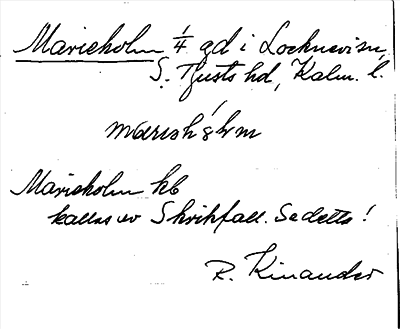 Marieholm 1/4 gd i Locknevi sn,
S. Tjusts hd, Kalm. l.
Marieholm kb
kallas av Skrikfall. Se detta!
R. Kinander